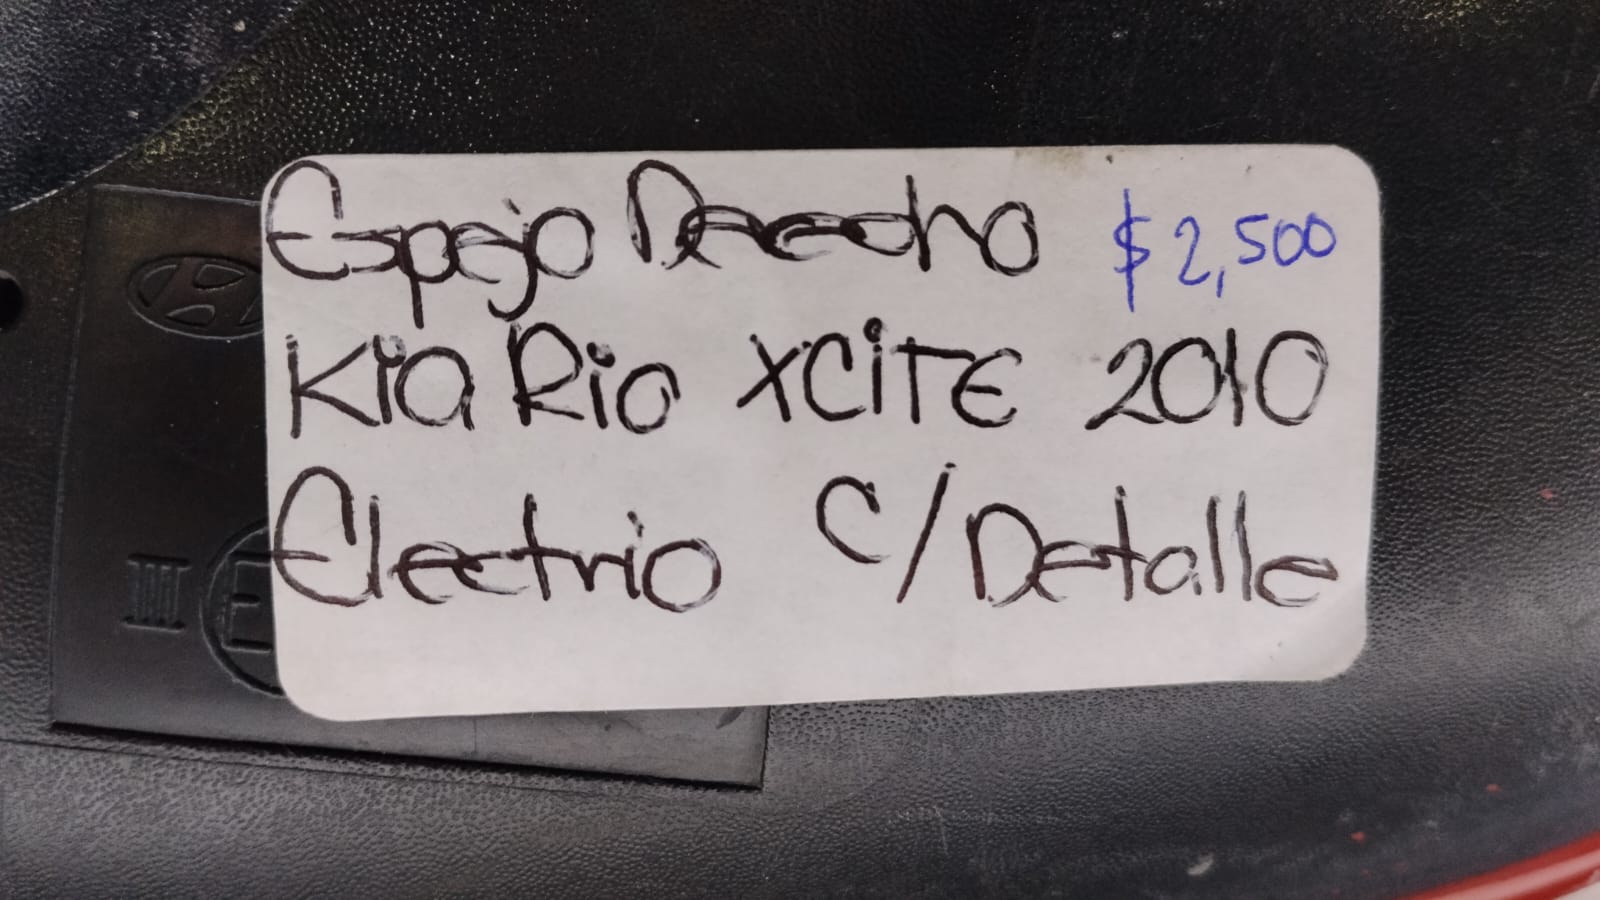 Espejo Derecho $2,500
Kia Rio XCITE 2010
Electrio C/Detalle